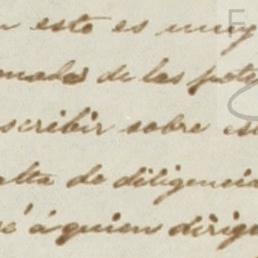 n esto es muy
omadas de las pote
scribir sobre est
alta de diligencia
é á quien dirigi